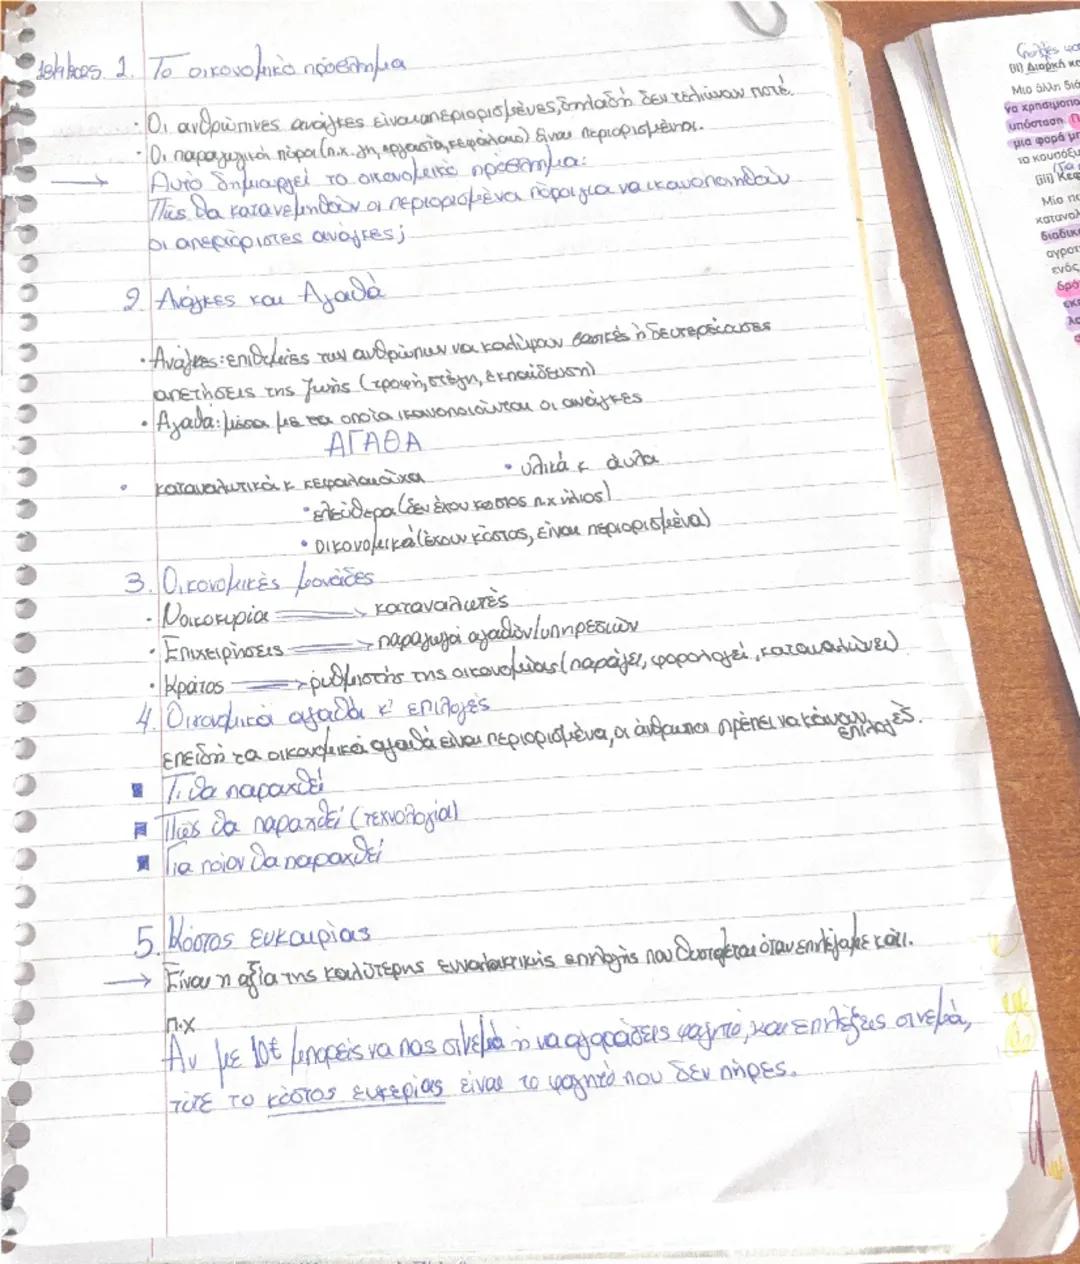 1. Το οικονομικό πρόβλημα
· Οι ανθρώπινες ανάγκες είναι απεριορισμένες, δηλαδή δεν τελειώνουν ποτέ.
· Οι παραγωγικοί πόροι (π.χ. γη, εργασία, κεφάλαιο) είναι περιορισμένοι.
→ Αυτό δημιουργεί το οικονομικό πρόβλημα:
Πώς θα κατανεμηθούν οι περιορισμένοι πόροι για να ικανοποιηθούν
οι απεριόριστες ανάγκες;
2. Ανάγκες και Αγαθά
· Ανάγκες: επιθυμίες των ανθρώπων να καλύψουν βασικές ή δευτερεύουσες
απετήσεις της ζωής (τροφή, στέγη, εκπαίδευση)
· Αγαθά: μέσα με τα οποία ικανοποιούνται οι ανάγκες
ΑΓΑΘΑ
• υλικά κ άυλα
• καταναλωτικά κ κεφαλαιούχα
• ελεύθερα (δεν έχουν κοστος π.χ ήλιος)
• οικονομικά (έχουν κόστος, είναι περιορισμένα)
3. Οικονομικές μονάδες
· Νοικοκυρία → καταναλωτές
· Επιχειρήσεις → παραγωγοί αγαθών/υπηρεσιών
· Κράτος → ρυθμιστής της οικονομίας (παράγει, φορολογεί, καταναλώνει)
4. Οικονομικά αγαθά κ' επιλογές
επειδή τα οικονομικά αγαθά είναι περιορισμένα, οι άνθρωποι πρέπει να κάνουν
επιλογές.
Τι θα παραχθεί
Πώς θα παραχθεί (τεχνολογία)
Για ποιον θα παραχθεί
5. Κόστος ευκαιρίας
→ Είναι η αξία της καλύτερης εναλλακτικής επιλογής που θυσιάζεται όταν επιλέγουμε κάτι.
π.χ
Αν με 10€ μπορείς να πας σινεμά ή να αγοράσεις φαγητό, και επιλέξεις σινεμά,
τότε το κόστος ευκερίας είναι το φαγητό που δεν πήρες.
(ii) Διαρκή κα
Μια άλλη διά
να χρησιμοπο
υπόσταση
μια φορά μπ
(iii) Κεφ
Μία πο
καταναλ
διαδικα
αγροτ
ενός